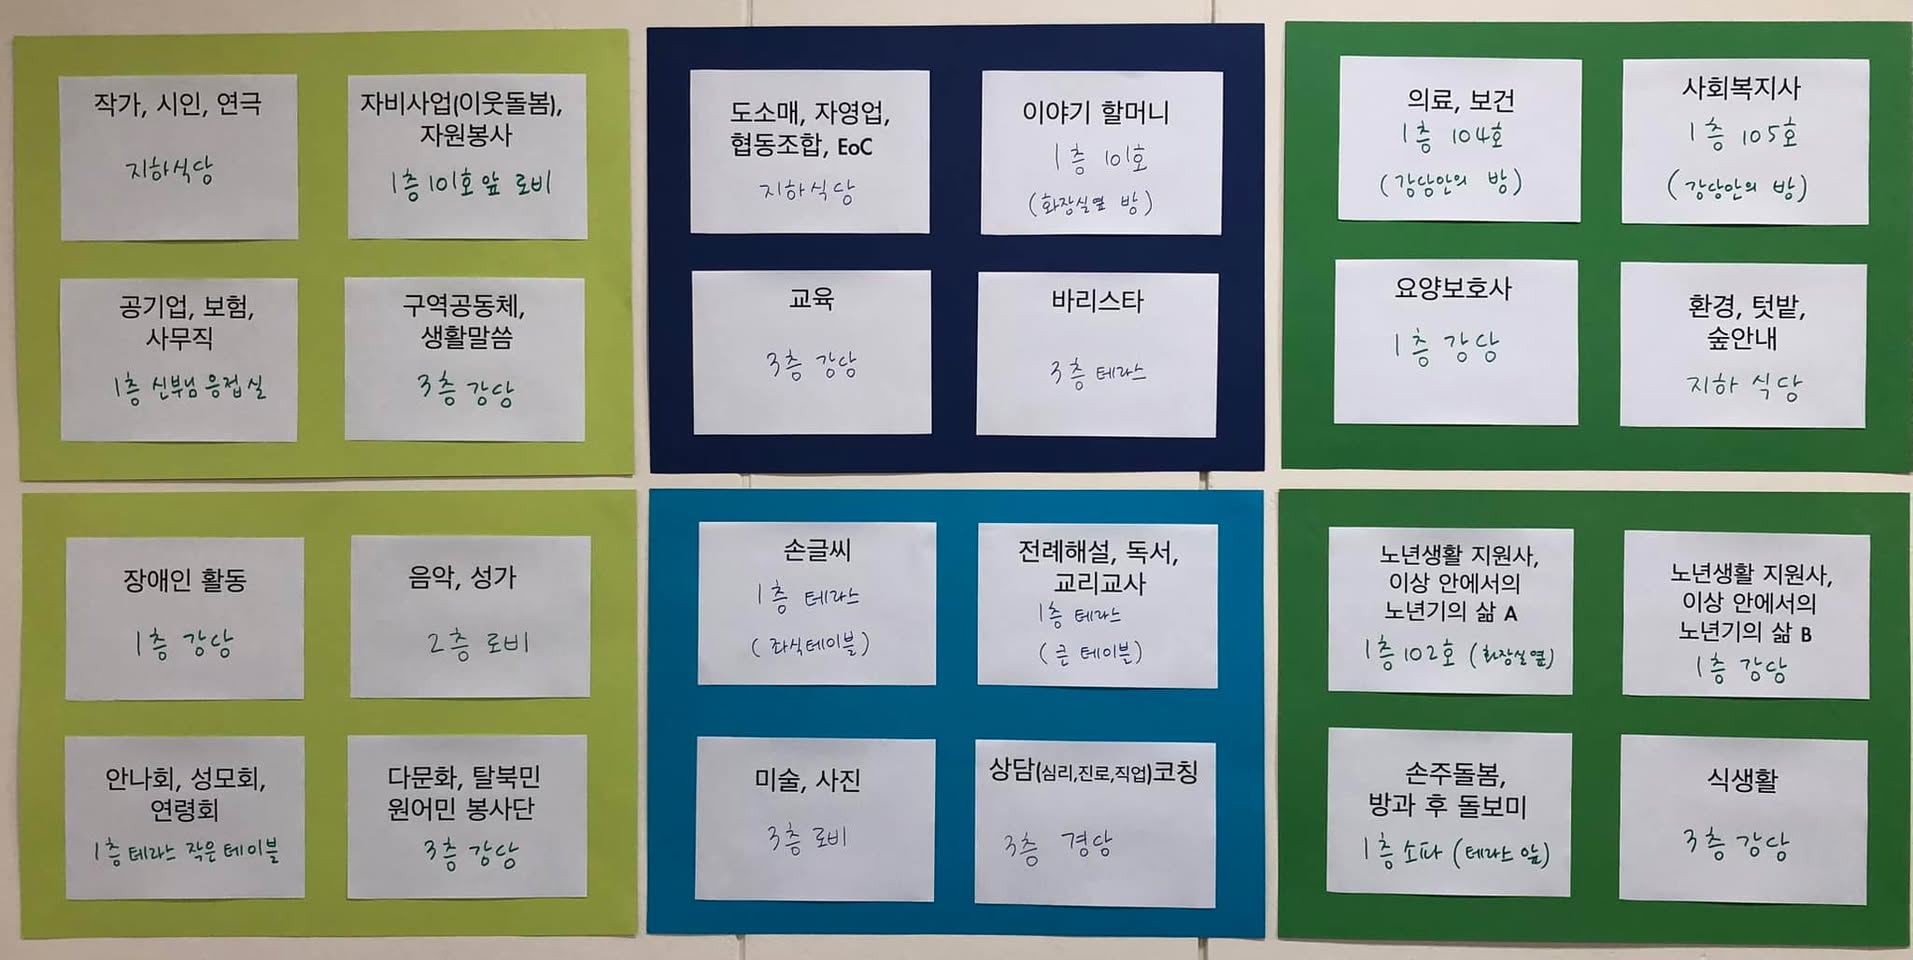 작가, 시인, 연극
지하식당
자비사업(이웃돌봄),
자원봉사
1층 101호 앞 로비
공기업, 보험,
사무직
1층 신부님 응접실
구역공동체,
생활말씀
3층 강당
도소매, 자영업,
협동조합, EoC
지하식당
이야기 할머니
1층 101호
(화장실옆 방)
교육
3층 강당
바리스타
3층 테라스
의료, 보건
1층 104호
(강당안의 방)
사회복지사
1층 105호
(강당안의 방)
요양보호사
1층 강당
환경, 텃밭,
숲안내
지하 식당
장애인 활동
1층 강당
음악, 성가
2층 로비
안나회, 성모회,
연령회
1층 테라스 작은 테이블
다문화, 탈북민
원어민 봉사단
3층 강당
손글씨
1층 테라스
(좌식테이블)
전례해설, 독서,
교리교사
1층 테라스
(큰 테이블)
미술, 사진
3층 로비
상담(심리,진로,직업)코칭
3층 경당
노년생활 지원사,
이상 안에서의
노년기의 삶 A
1층 102호 (화장실 옆)
노년생활 지원사,
이상 안에서의
노년기의 삶 B
1층 강당
손주돌봄,
방과 후 돌보미
1층 소파 (테라스 앞)
식생활
3층 강당